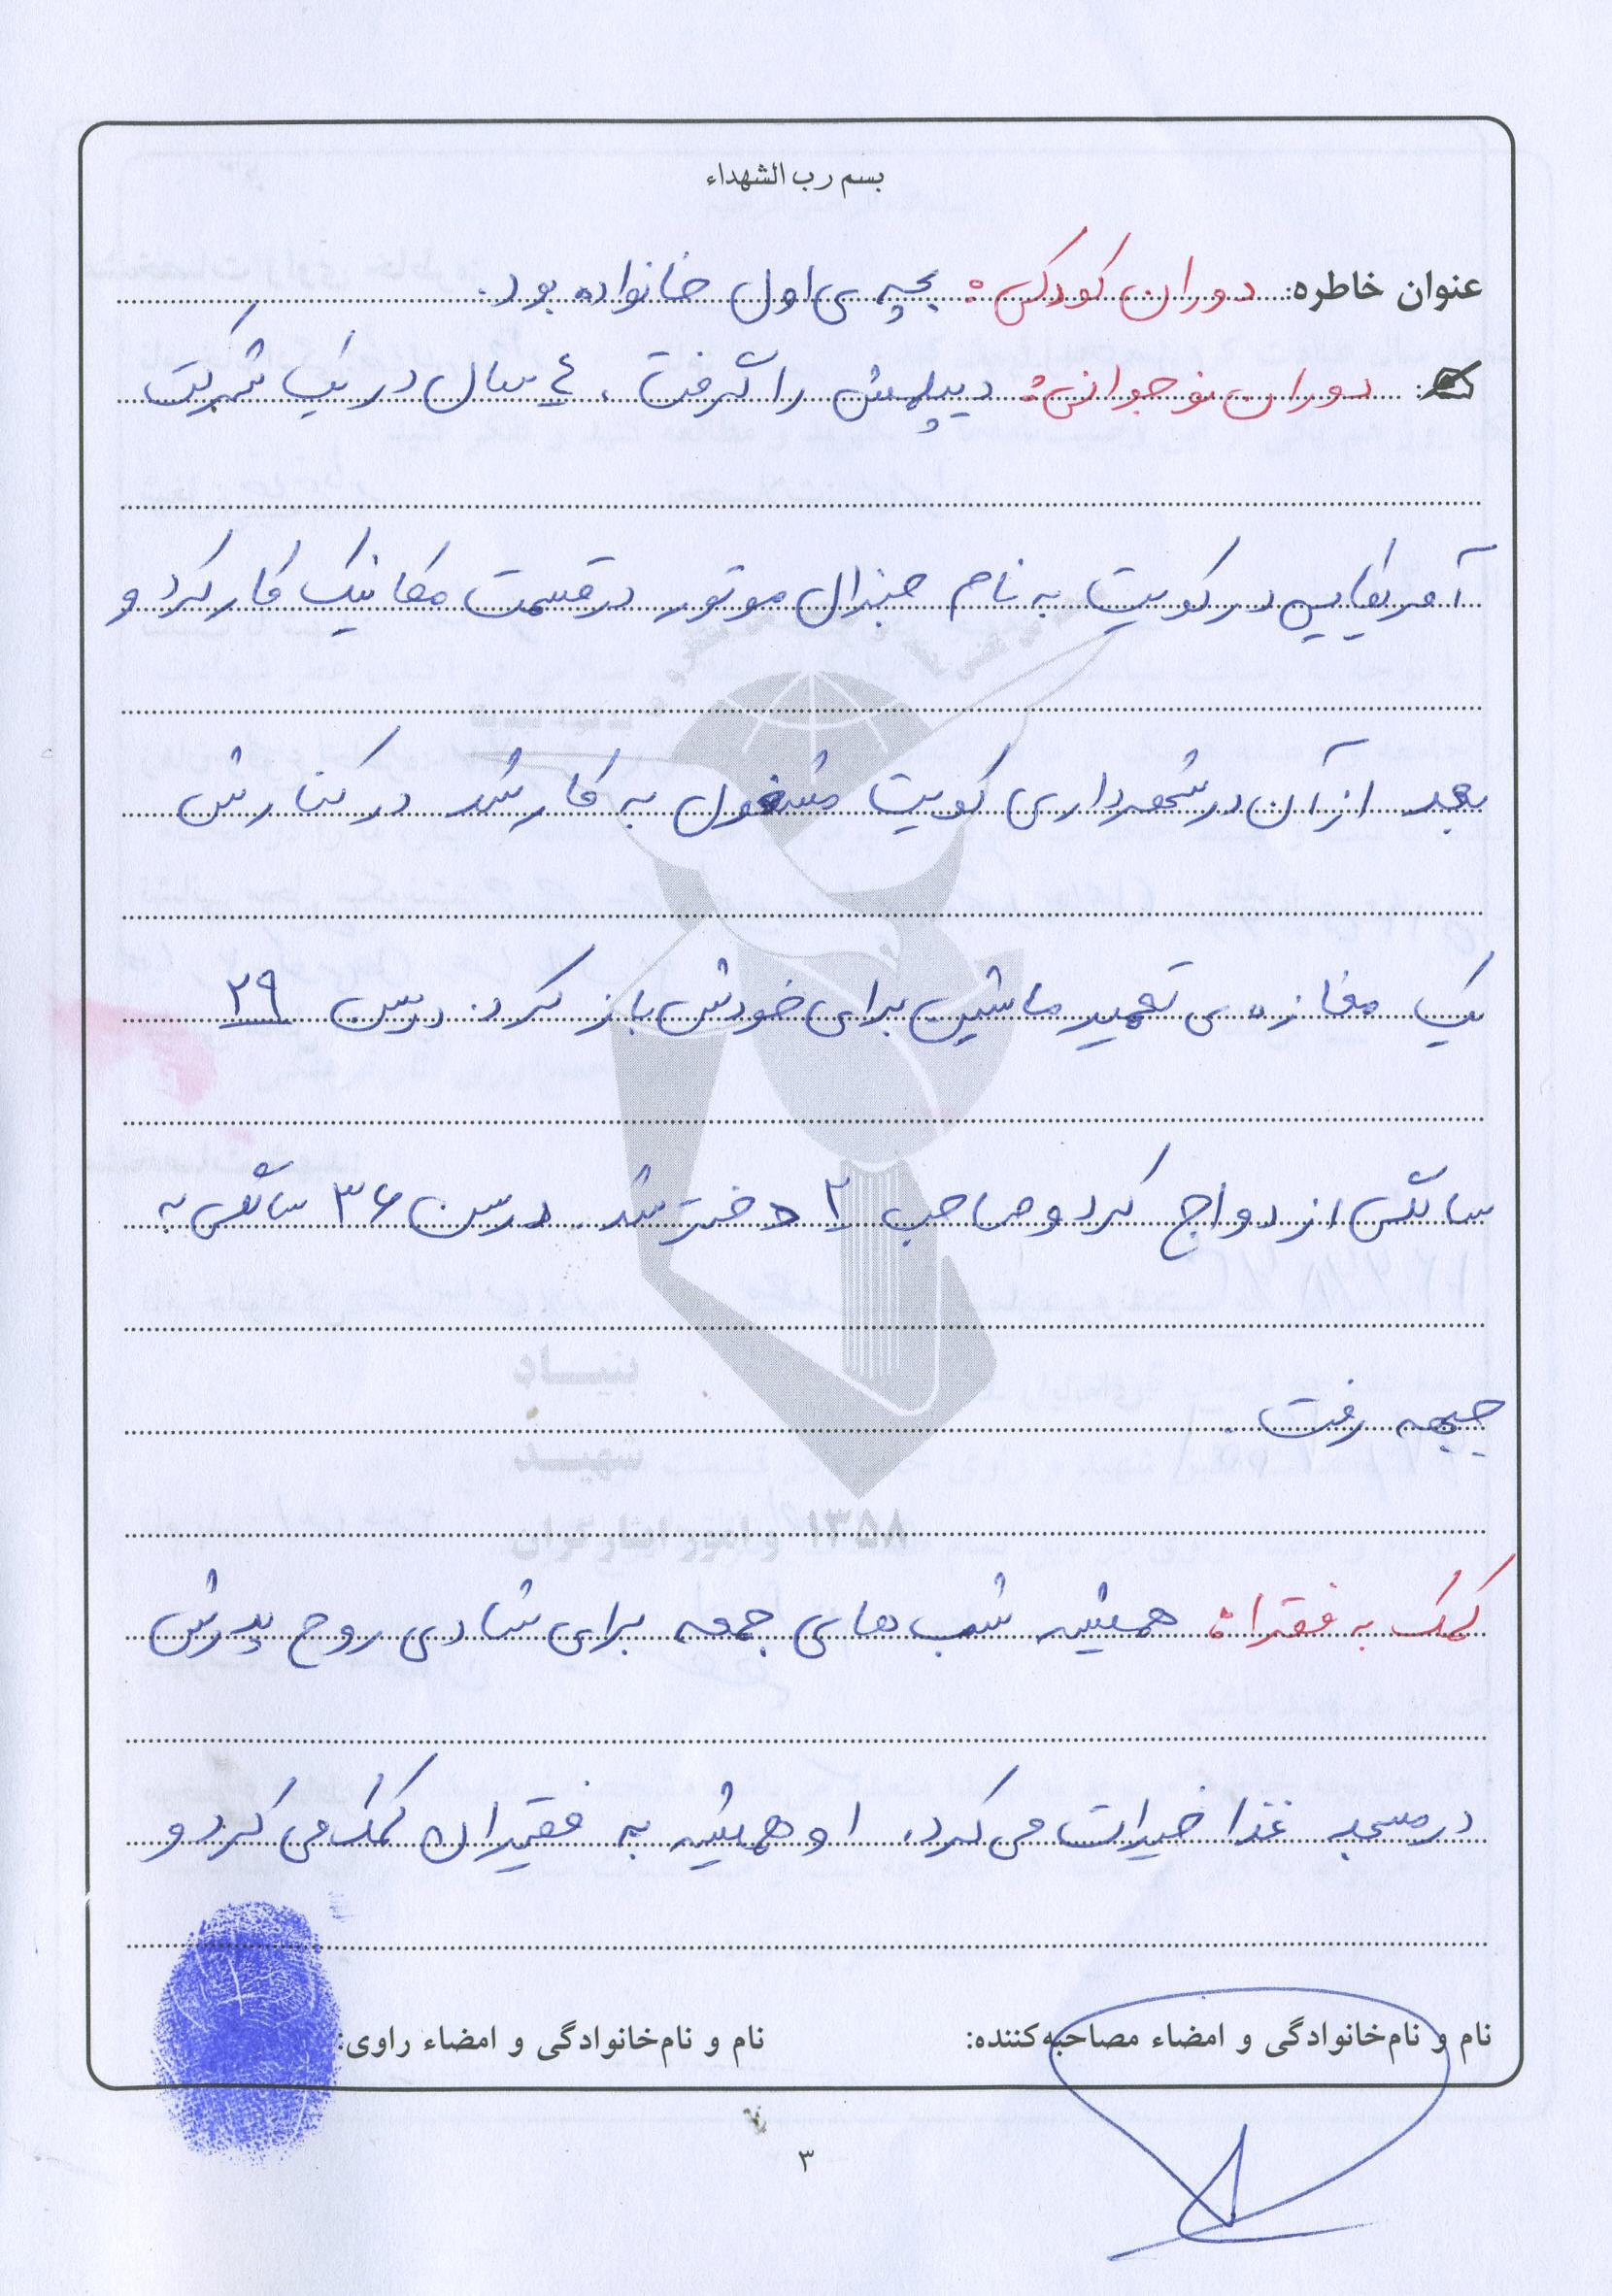 بسم رب الشهداء
عنوان خاطره: دوران کودکی: بچه ی اول خانواده بود.
دوران نوجوانی: دیپلمش را گرفت، ٤ سال در یک شرکت
آفریقایی در کویت به نام جنرال موتور در قسمت مکانیک کار کرد و
بعد از آن در شهرداری کویت مشغول به کار شد در کنارش
یک مغازه ی تعمیر ماشین برای خودش باز کرد. در سن ۲۹
سالگی ازدواج کرد و صاحب ۲ دختر شد. در سن ۳۶ سالگی به
جبهه رفت.
کمک به فقرا: همیشه شب های جمعه برای شادی روح پدرش
در مسجد غذا خیرات می کرد. او همیشه به فقیران کمک می کرد و
نام و نام‌خانوادگی و امضاء مصاحبه‌کننده:
نام و نام‌خانوادگی و امضاء راوی:
۳
بنیاد
شهید
و امور ایثارگران
۱۳۵۸